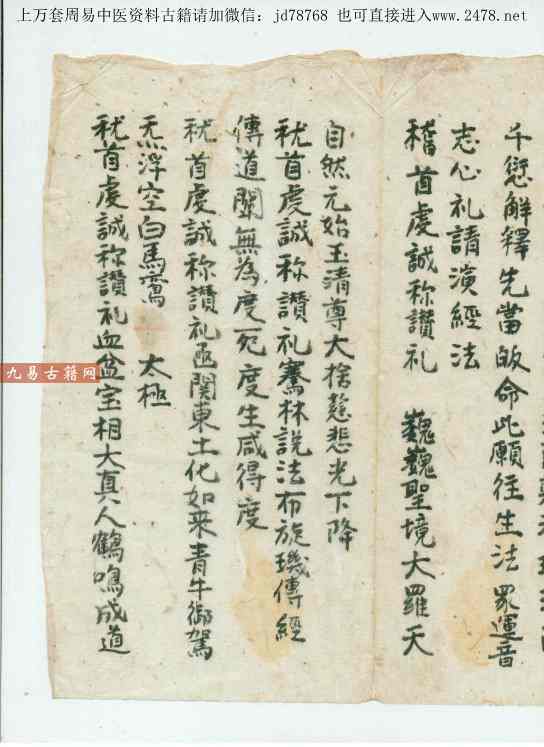 上万套周易中医资料古籍请加微信：jd78768 也可直接进入www.2478.net
千愆解釋先當皈命此願往生法眾運音
志心礼請演經法
稽首虔誠称讚礼 巍巍聖境大羅天
自然元始玉清尊大捨慈悲光下降
稽首虔誠称讚礼騫林説法布旋璣傳經
傳道闡無為度死度生咸得度
稽首虔誠称讚礼函関東土化如来青牛御駕
炁浮空白馬鸾 太極
稽首虔誠称讚礼血盆宝相大真人鶴鳴成道
九易古籍网